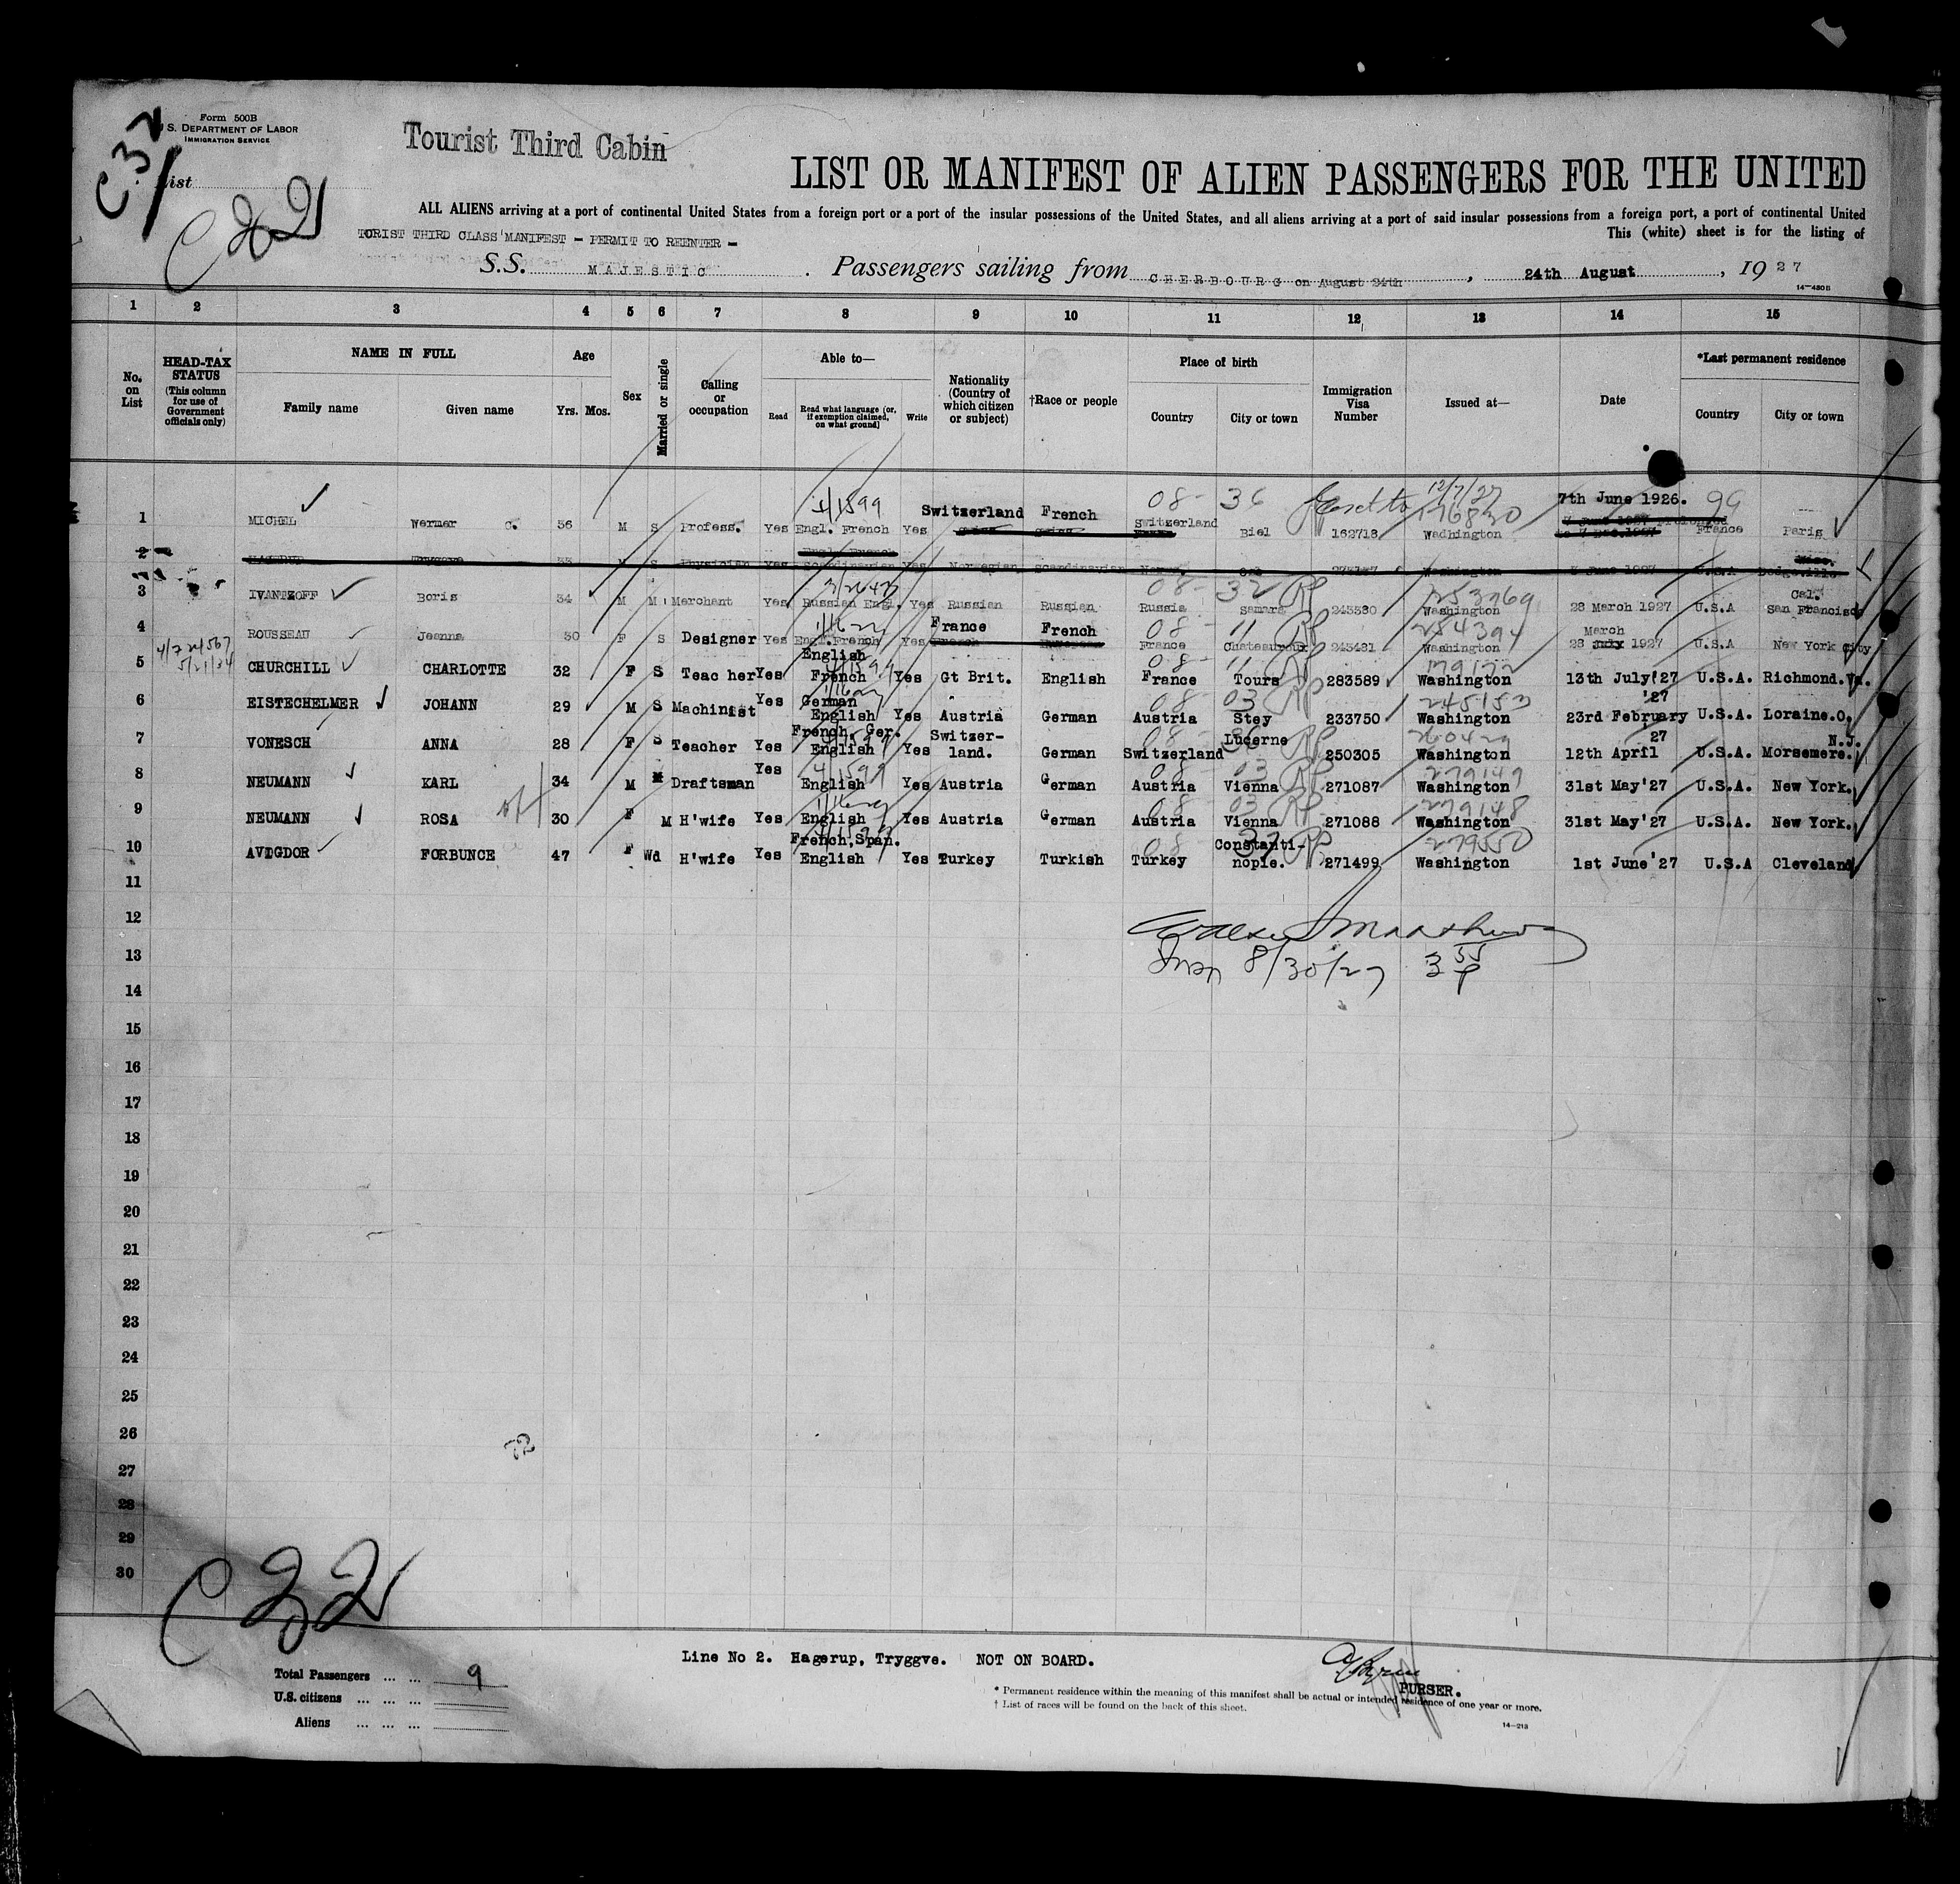 C32
1
Form 500B
U.S. DEPARTMENT OF LABOR
IMMIGRATION SERVICE
List
Tourist Third Cabin
LIST OR MANIFEST OF ALIEN PASSENGERS FOR THE UNITED
ALL ALIENS arriving at a port of continental United States from a foreign port or a port of the insular possessions of the United States, and all aliens arriving at a port of said insular possessions from a foreign port, a port of continental United
This (white) sheet is for the listing of
TORIST THIRD CLASS MANIFEST - PERMIT TO REENTER -
S.S. MAJESTIC . Passengers sailing from CHERBOURG on August 24th , 24th August , 19 27
14-430B
1 2 3 4 5 6 7 8 9 10 11 12 13 14 15
No. on List
HEAD-TAX STATUS (This column for use of Government officials only)
NAME IN FULL Family name Given name
Age Yrs. Mos.
Sex
Married or single
Calling or occupation
Able to— Read Read what language (or, if exemption claimed, on what ground) Write
Nationality (Country of which citizen or subject)
†Race or people
Place of birth Country City or town
Immigration Visa Number
Issued at—
Date
*Last permanent residence Country City or town
4/1599 08- 36 12/7/27 176830 99
1 MICHEL Werner C. 36 M S Profess. Yes Engl. French Yes Switzerland French Switzerland Biel 162713 Wadhington 7th June 1926. France Paris
2 Physician Yes Scandinavian Yes Norwegian Scandinavian Washington 7 June 1927 U.S.A Dodgeville
08- 32 RP 253769
3 IVANTZOFF Boris 34 M M Merchant Yes Russian Engl. Yes Russian Russian Russia Samara 243530 Washington 28 March 1927 U.S.A Cal. San Francisco
08- 11 RP 254394
4 ROUSSEAU Jeanne 30 F S Designer Yes Engl. French Yes France French France Chateauroux 243421 Washington 28 March 1927 U.S.A New York City
5/21/34 08- 11 RP
5 CHURCHILL CHARLOTTE 32 F S Teacher Yes English French Yes Gt Brit. English France Tours 283589 Washington 13th July'27 U.S.A. Richmond.Va.
08 03 RP 245153
6 EISTECHELMER JOHANN 29 M S Machinist Yes German English Yes Austria German Austria Stey 233750 Washington 23rd February '27 U.S.A. Loraine.O.
7 VONESCH ANNA 28 F S Teacher Yes French. Ger. English Yes Switzer-land. German Switzerland Lucerne 250305 Washington 12th April 27 U.S.A. Morsemere. N.J.
08 03 RP 279149
8 NEUMANN KARL 34 M M Draftsman Yes English Yes Austria German Austria Vienna 271087 Washington 31st May'27 U.S.A. New York.
08 03 RP 279148
9 NEUMANN ROSA 30 F M H'wife Yes English Yes Austria German Austria Vienna 271088 Washington 31st May'27 U.S.A. New York.
08 RP 279550
10 AVIGDOR FORBUNCE 47 F Wd H'wife Yes French,Span. English Yes Turkey Turkish Turkey Constanti-nople. 271499 Washington 1st June'27 U.S.A Cleveland
11
12
13
8/30/27 3 55 P
14
15
16
17
18
19
20
21
22
23
24
25
26
72
27
28
29
30
Line No 2. Hagerup, Tryggve. NOT ON BOARD.
Total Passengers ... ... 9
U.S. citizens ... ... ...
Aliens ... ... ...
PURSER.
* Permanent residence within the meaning of this manifest shall be actual or intended residence of one year or more.
† List of races will be found on the back of this sheet.
14-213